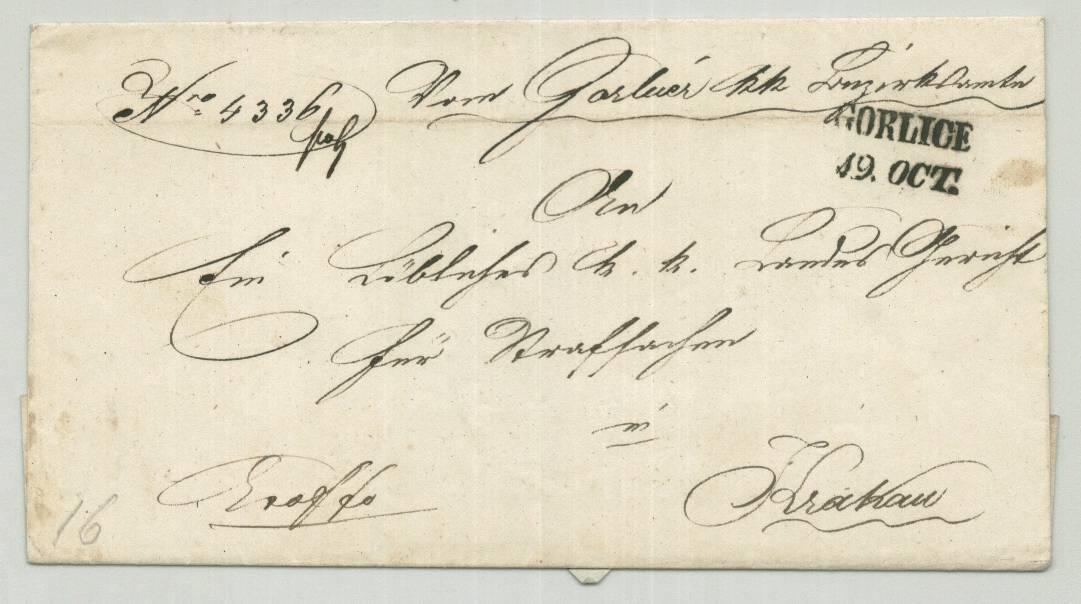 Nro 4336/pol Vom Gorlicer kk Bezirksamte
GORLICE
19. OCT.
An
Ein Löbliches k. k. Landes Gericht
für Strafsachen
in
Krakau
16